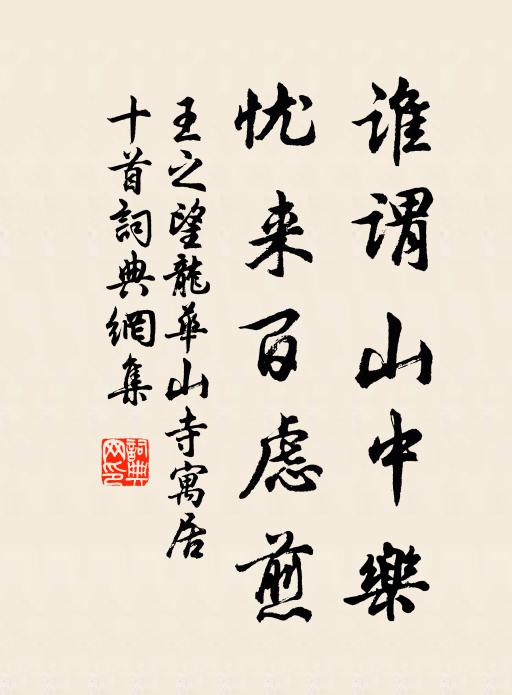 谁谓山中樂
忧来百虑煎
王之望龍華山寺寓居
十首詞典網集
詞典
网印